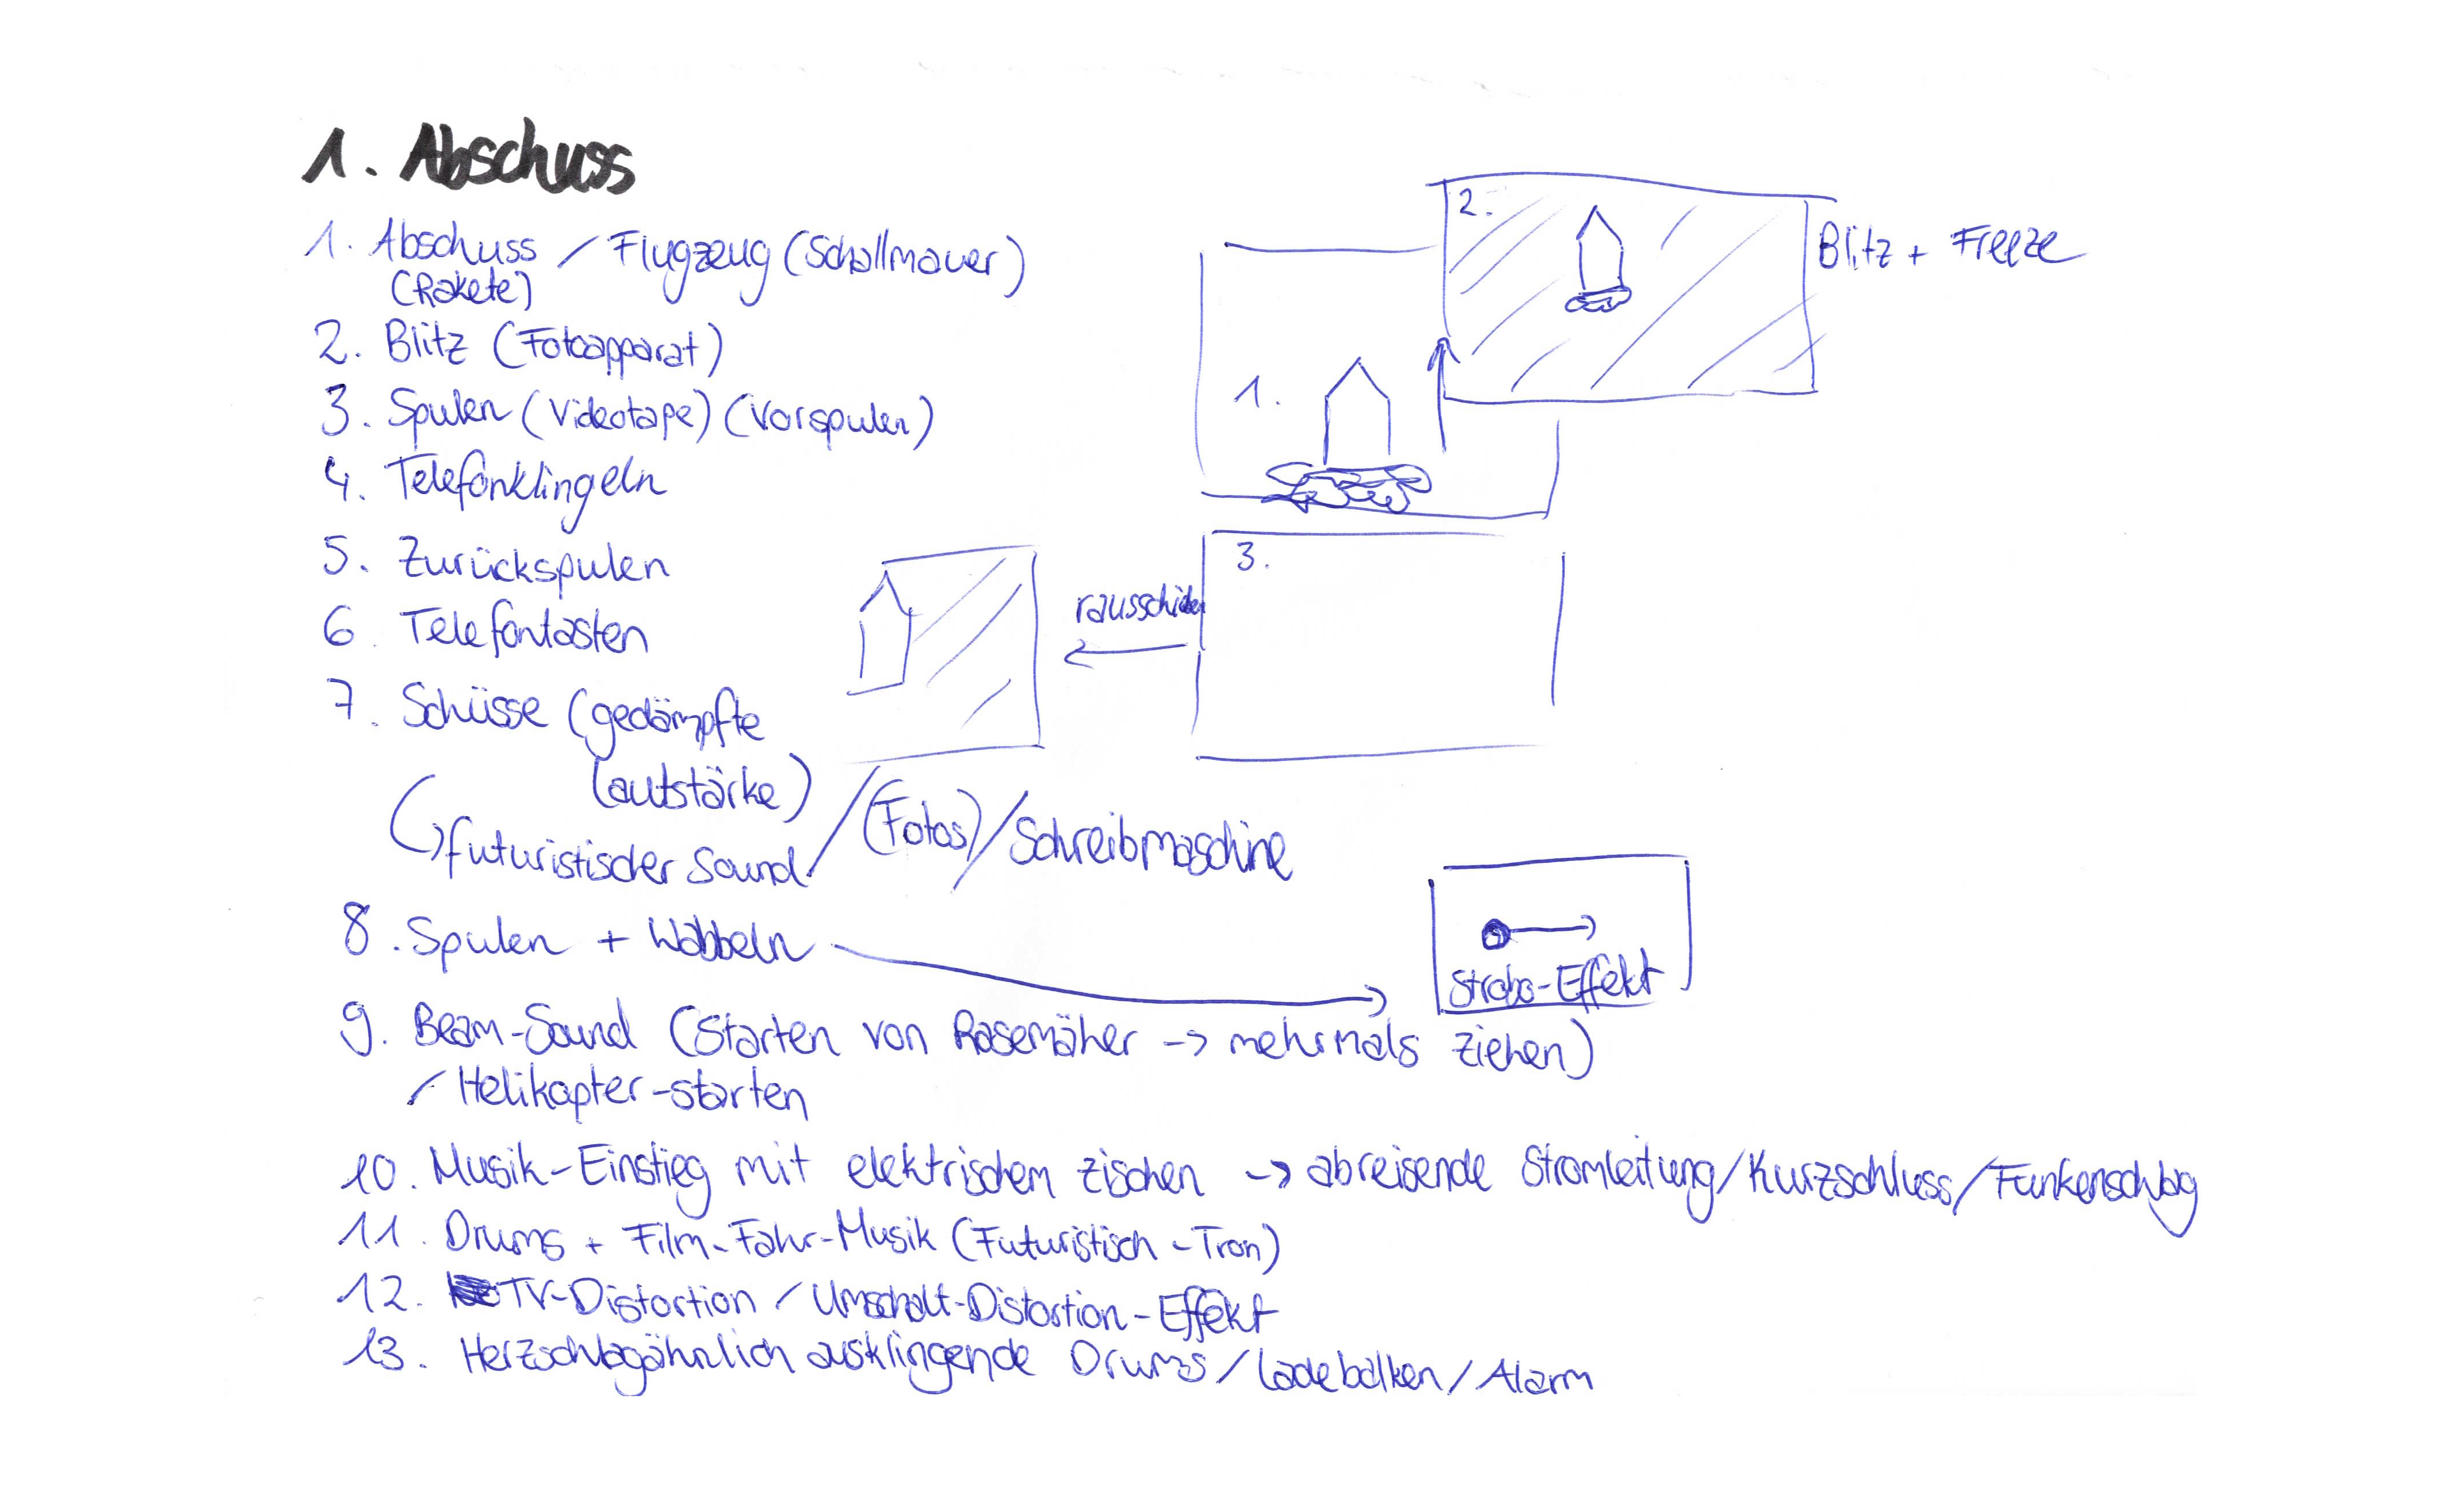 1. Abschuss
1. Abschuss / Flugzeug (Schallmauer)
(Rakete)
2. Blitz (Fotoapparat)
3. Spulen (Videotape) (Vorspulen)
4. Telefonklingeln
5. Zurückspulen
6. Telefontasten
7. Schüsse (gedämpfte
Lautstärke)
futuristischer Sound / (Fotos) / Schreibmaschine
8. Spulen + Wabbeln
9. Beam-Sound (Starten von Rasemäher -> mehrmals ziehen)
/ Helikopter-starten
10. Musik-Einstieg mit elektrischem zischen -> abreisende Stromleitung/Kurzschluss/Funkenschlag
11. Drums + Film-Fahr-Musik (Futuristisch - Tron)
12. TV-Distortion / Umschalt-Distortion-Effekt
13. Herzschlagähnlich ausklingende Drums / Ladebalken / Alarm
2.
Blitz + Freeze
1.
3.
Strobo-Effekt